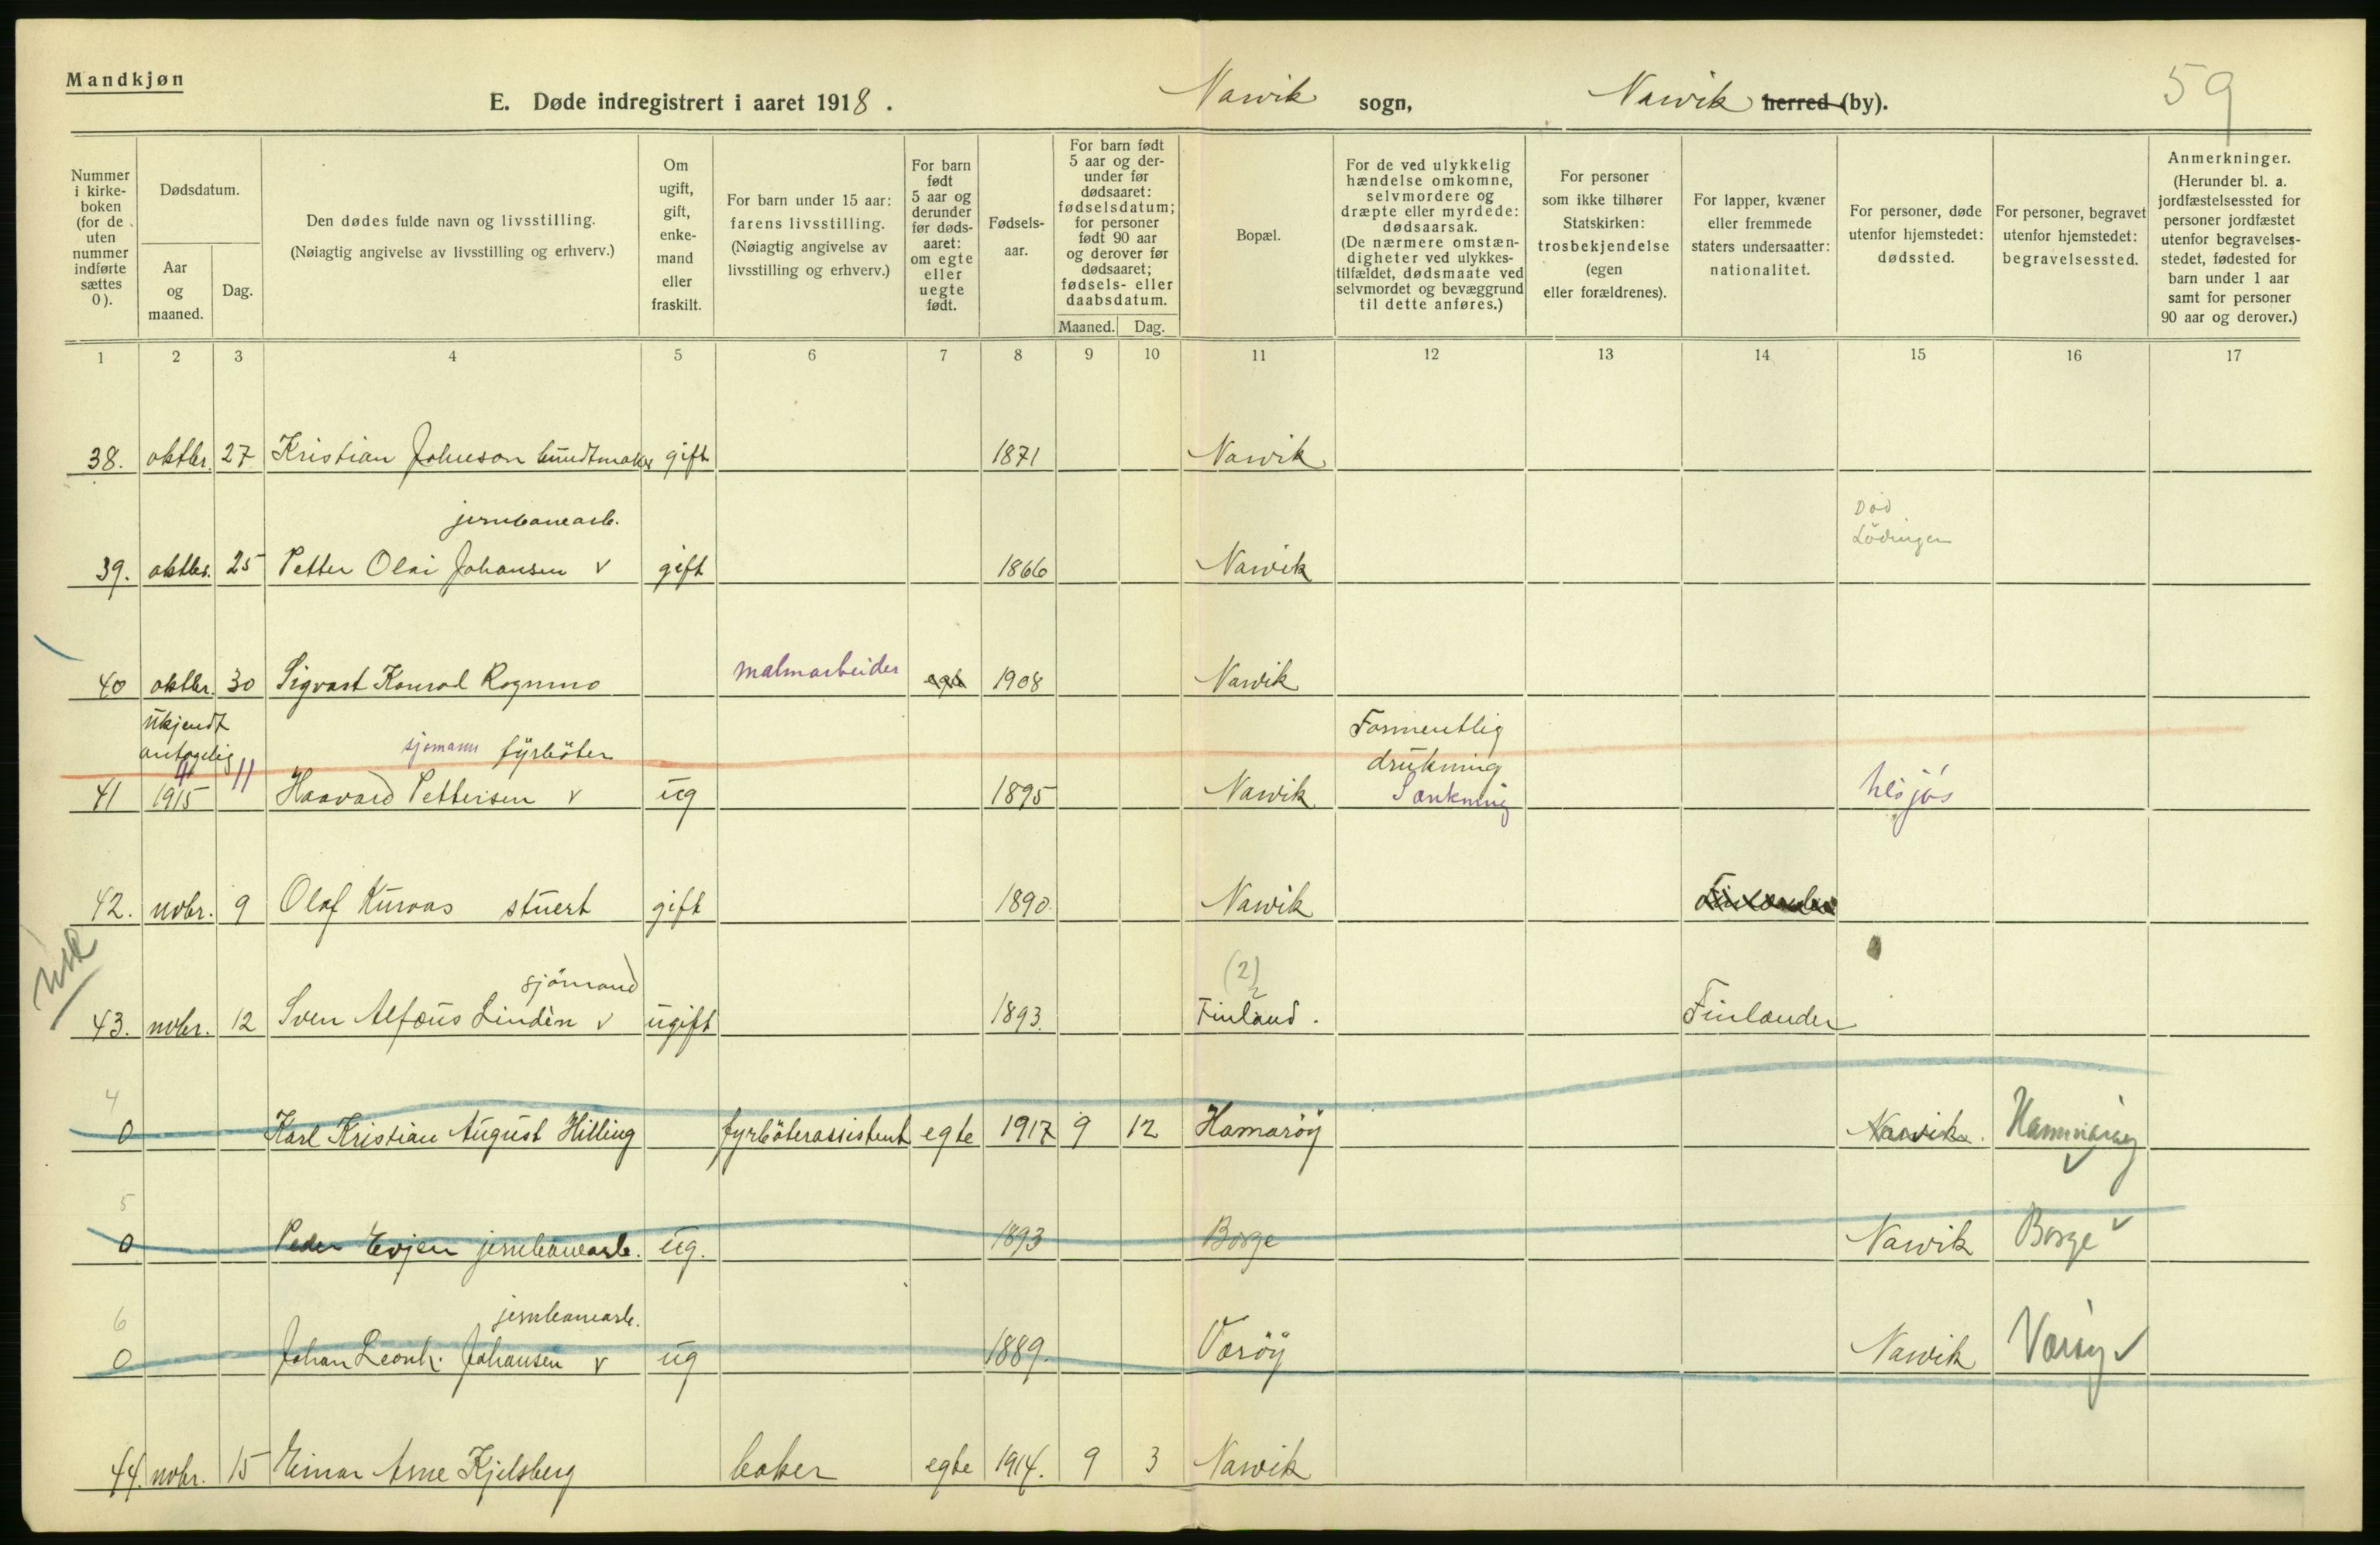 Mandkjøn
E. Døde indregistrert i aaret 1918. Narvik sogn, Narvik herred (by). 59
Nummer i kirkeboken (for de uten nummer indførte sættes 0).
Dødsdatum.
Aar og maaned.
Dag.
Den dødes fulde navn og livsstilling.
(Nøiagtig angivelse av livsstilling og erhverv.)
Om ugift, gift, enkemand eller fraskilt.
For barn under 15 aar: farens livsstilling.
(Nøiagtig angivelse av livsstilling og erhverv.)
For barn født 5 aar og derunder før dødsaaret: om egte eller uegte født.
Fødselsaar.
For barn født 5 aar og derunder før dødsaaret: fødselsdatum; for personer født 90 aar og derover før dødsaaret; fødsels- eller daabsdatum.
Maaned. Dag.
Bopæl.
For de ved ulykkelig hændelse omkomne, selvmordere og dræpte eller myrdede: dødsaarsak.
(De nærmere omstændigheter ved ulykkestilfældet, dødsmaate ved selvmordet og bevæggrund til dette anføres.)
For personer som ikke tilhører Statskirken: trosbekjendelse (egen eller forældrenes).
For lapper, kvæner eller fremmede staters undersaatter: nationalitet.
For personer, døde utenfor hjemstedet: dødssted.
For personer, begravet utenfor hjemstedet: begravelsessted.
Anmerkninger.
(Herunder bl. a. jordfæstelsessted for personer jordfæstet utenfor begravelsesstedet, fødested for barn under 1 aar samt for personer 90 aar og derover.)
1 2 3 4 5 6 7 8 9 10 11 12 13 14 15 16 17
38. oktbr. 27 Kristian Johnson gift 1871 Narvik
jernbanearb. Död Lödingen
39. oktbr. 25 Petter Olai Johansen v gift 1866 Narvik
40 oktbr. 30 Sigvart Konrad Rognmo malmarbeider egte 1908 Narvik
ukjendt antagelig sjømann fyrböter Formentlig drukning
41 1915 11 Haavard Pettersen v ug 1895 Narvik Sænkning
42. novbr. 9 Olaf stuert gift 1890. Narvik Finlænder
usk sjömand (2)
43. novbr. 12 Sven Alfons Lindèn v ugift 1893. Finland. Finlænder
4
0 Karl Kristian August Hilling fyrböterassistent egte 1917 9 12 Hamaröy Narvik. Hammaröy
5
0 Peder Evjen jernbanearb. ug. 1893 Borge Narvik Borge v
6 jernbanearb.
0 Johan Leonh. Johansen v ug 1889. Væröy Narvik Væröy v
44. novbr. 15 Einar Arne Kjelsberg baker egte 1914. 9 3 Narvik